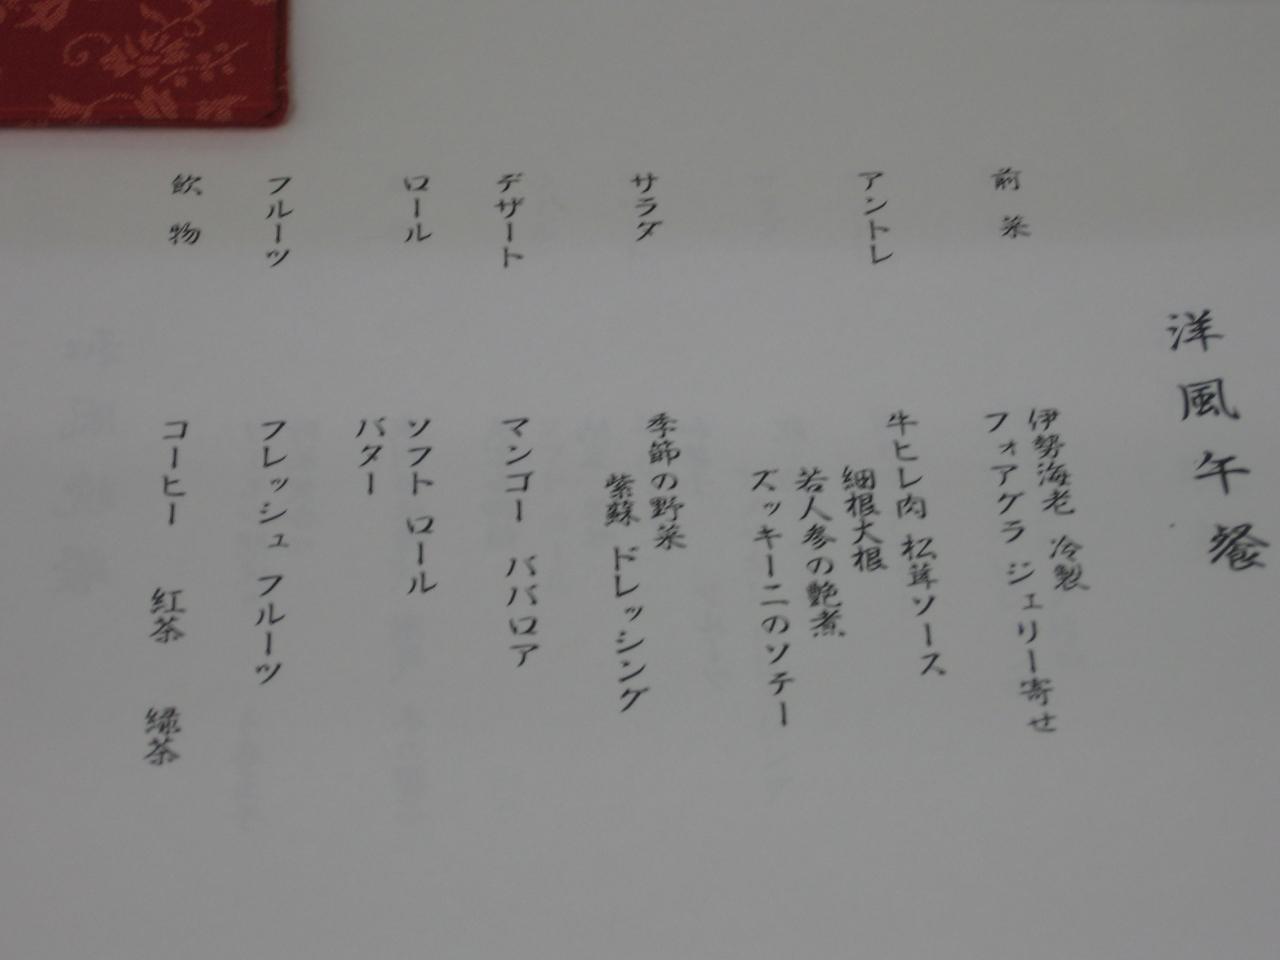 洋風午餐
前菜
伊勢海老 冷製
フォアグラ ジェリー寄せ
アントレ
牛ヒレ肉 松茸ソース
細根大根
若人参の艶煮
ズッキーニのソテー
サラダ
季節の野菜
紫蘇 ドレッシング
デザート
マンゴー ババロア
ロール
ソフト ロール
バター
フルーツ
フレッシュ フルーツ
飲物
コーヒー 紅茶 緑茶